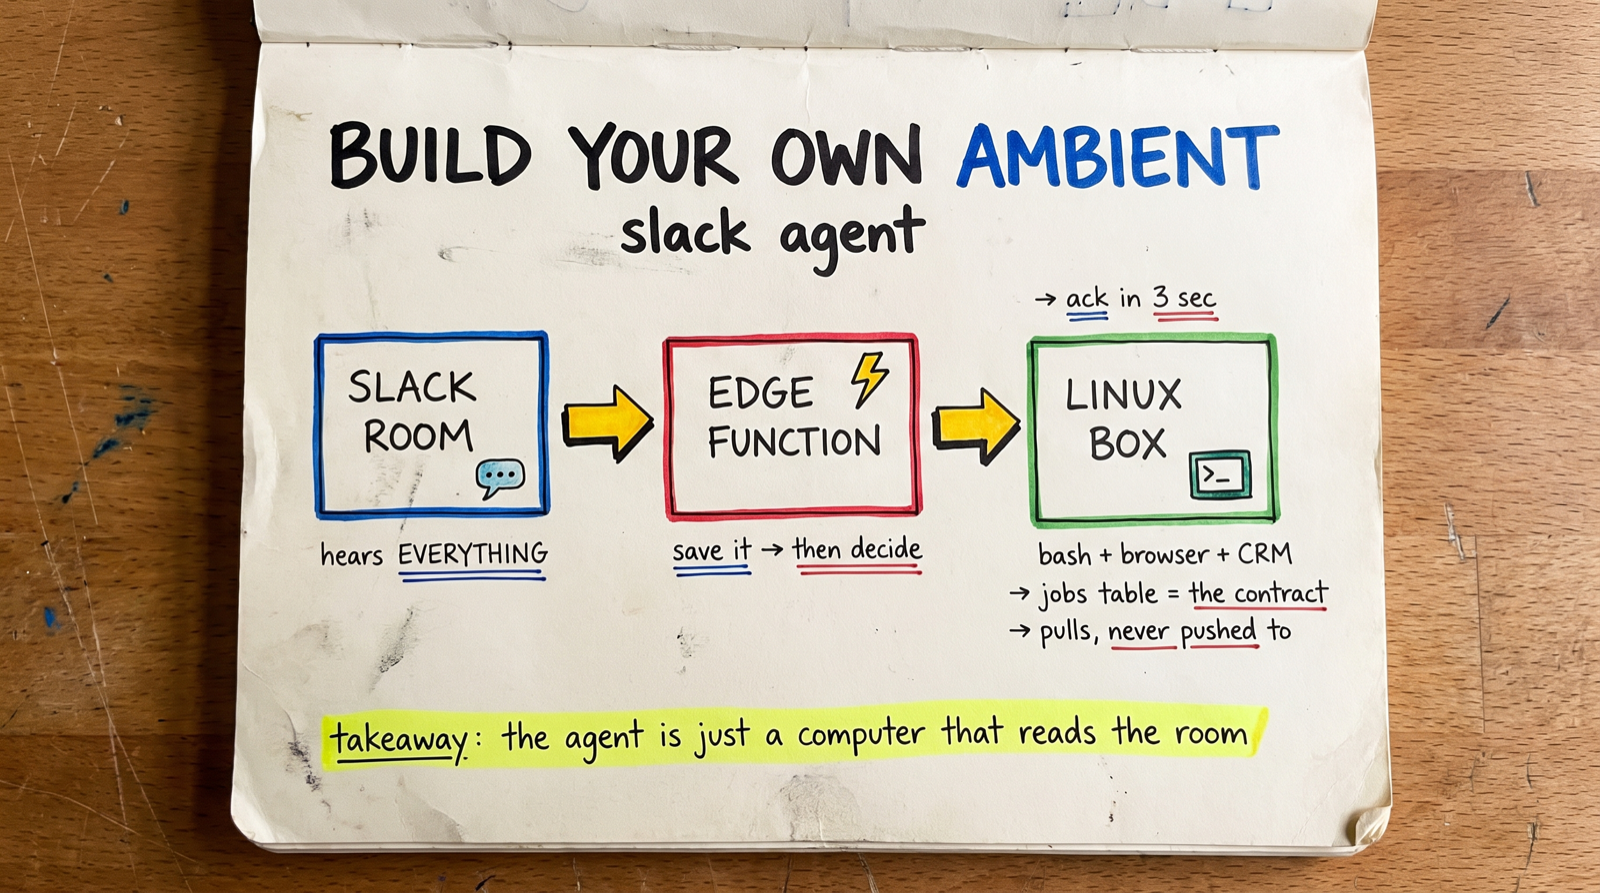 BUILD YOUR OWN AMBIENT
slack agent
SLACK
ROOM
hears EVERYTHING
EDGE
FUNCTION
save it → then decide
→ ack in 3 sec
LINUX
BOX
>_
bash + browser + CRM
→ jobs table = the contract
→ pulls, never pushed to
takeaway: the agent is just a computer that reads the room